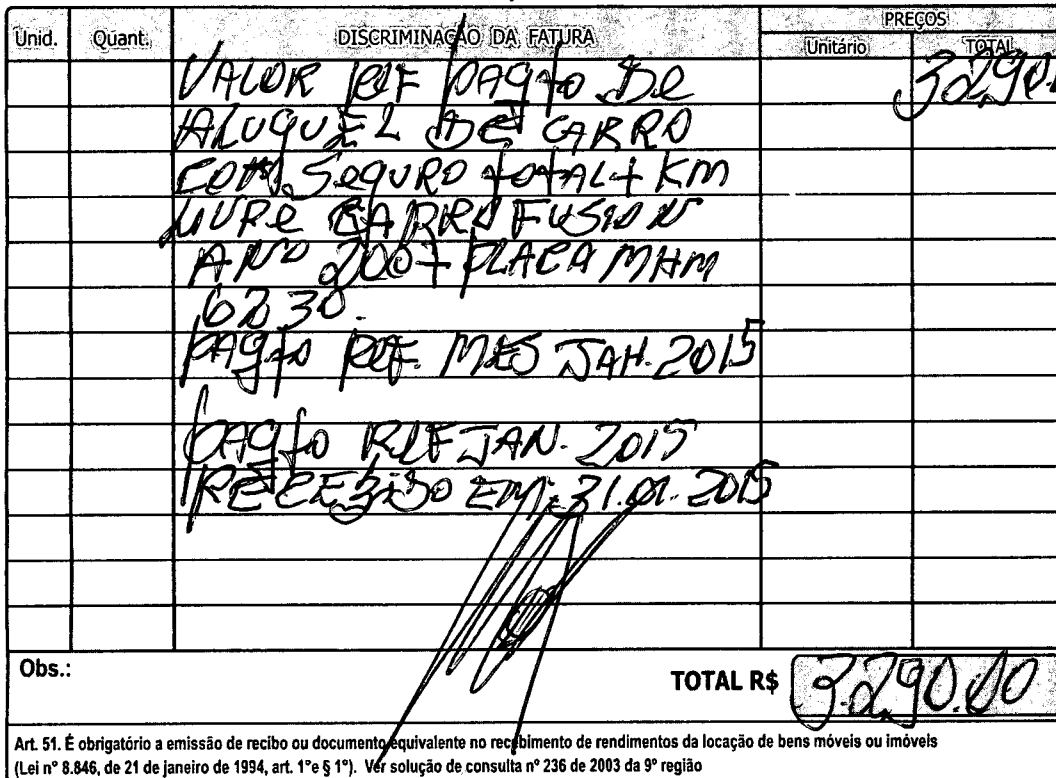 PREÇOS
Unid. Quant. DISCRIMINAÇÃO DA FATURA Unitário TOTAL
VALOR REF pagto De 3.290.
ALUGUEL De CARRO
COM. Seguro total + KM
LIVRe CARRO FUSION
ANO 2007 PLACA MHM
6230.
pagto REF. MES JAN. 2015
pagto REF JAN. 2015
RECEBIDO EM: 31.01.2015
Obs.: TOTAL R$ 3.290.00
Art. 51. É obrigatório a emissão de recibo ou documento equivalente no recebimento de rendimentos da locação de bens móveis ou imóveis
(Lei nº 8.846, de 21 de janeiro de 1994, art. 1º e § 1º). Ver solução de consulta nº 236 de 2003 da 9º região